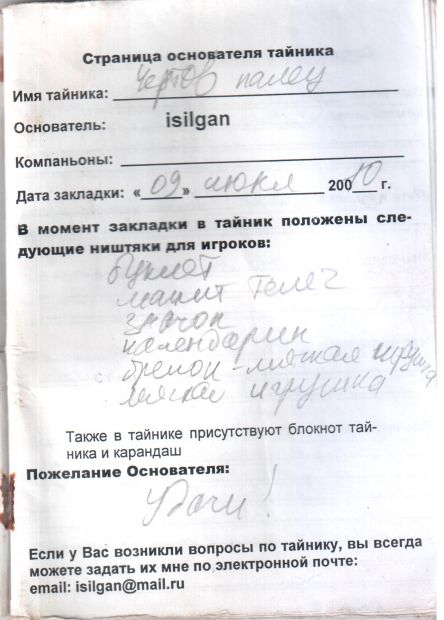 Страница основателя тайника
Имя тайника: Чертов палец
Основатель: isilgan
Компаньоны:
Дата закладки: «09» июля 20010 г.
В момент закладки в тайник положены сле-
дующие ништяки для игроков:
буклет
магнит Телец
значок
календарик
брелок - мягкая игрушка
мягкая игрушка
Также в тайнике присутствуют блокнот тай-
ника и карандаш
Пожелание Основателя:
Удачи!
Если у Вас возникли вопросы по тайнику, вы всегда
можете задать их мне по электронной почте:
email: isilgan@mail.ru